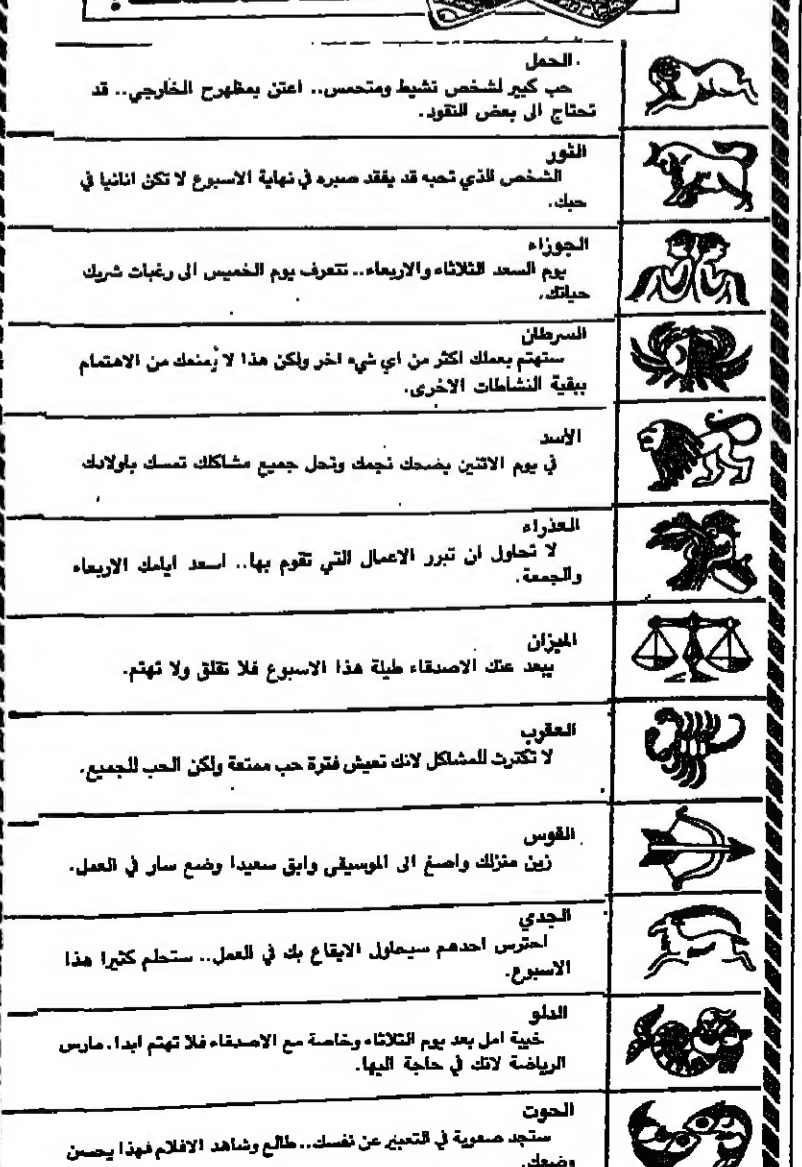 الحمل
حب كبير لشخص نشيط ومتحمس.. اعتن بمظهرح الخارجي.. قد
تحتاج الى بعض النقود.
الثور
الشخص الذي تحبه قد يفقد صبره في نهاية الاسبوع لا تكن انانيا في
حبك.
الجوزاء
يوم السعد الثلاثاء والاربعاء.. تتعرف يوم الخميس الى رغبات شريك
حياتك.
السرطان
ستهتم بعملك اكثر من اي شيء اخر ولكن هذا لا يمنعك من الاهتمام
ببقية النشاطات الاخرى.
الأسد
في يوم الاثنين يضحك نجمك وتحل جميع مشاكلك تمسك باولادك
العذراء
لا تحاول ان تبرر الاعمال التي تقوم بها.. اسعد ايامك الاربعاء
والجمعة.
الميزان
يبعد عنك الاصدقاء طيلة هذا الاسبوع فلا تقلق ولا تهتم.
العقرب
لا تكترث للمشاكل لانك تعيش فترة حب ممتعة ولكن الحب للجميع.
القوس
زين منزلك واصغ الى الموسيقى وابق سعيدا وضع سار في العمل.
الجدي
احترس احدهم سيحاول الايقاع بك في العمل.. ستحلم كثيرا هذا
الاسبوع.
الدلو
خيبة امل بعد يوم الثلاثاء وخاصة مع الاصدقاء فلا تهتم ابدا. مارس
الرياضة لانك في حاجة اليها.
الحوت
ستجد صعوبة في التعبير عن نفسك.. طالع وشاهد الافلام فهذا يحسن
وضعك.